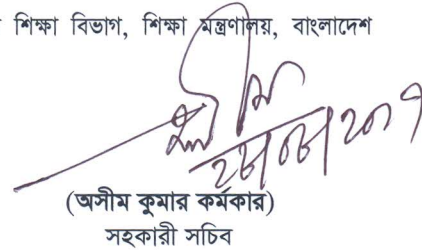 শিক্ষা বিভাগ, শিক্ষা মন্ত্রণালয়, বাংলাদেশ
(অসীম কুমার কর্মকার)
সহকারী সচিব